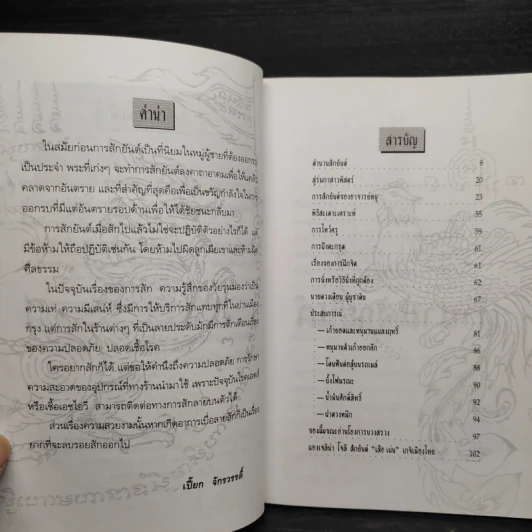 คำนำ
ในสมัยก่อนการสักยันต์เป็นที่นิยมในหมู่ผู้ชายที่ต้องออกรบ
เป็นประจำ พระที่เก่งๆ จะทำการสักยันต์ลงคาถาอาคมเพื่อให้แคล้ว
คลาดจากอันตราย และที่สำคัญที่สุดคือเพื่อเป็นขวัญกำลังใจในการ
ออกรบที่มีแต่อันตรายรอบด้านเพื่อให้ได้ชัยชนะกลับมา
การสักยันต์เมื่อสักไปแล้วไม่ใช่จะปฏิบัติตัวอย่างไรก็ได้
มีข้อห้ามให้ถือปฏิบัติเช่นกัน โดยห้ามไปผิดลูกเมียเขาและห้ามผิด
ศีลธรรม
ในปัจจุบันเรื่องของการสัก ความรู้สึกของวัยรุ่นมองว่าเป็น
ความเท่ ความมีเสน่ห์ ซึ่งมีการให้บริการสักแทบทุกที่ในย่านเมือง
กรุง แต่การสักในร้านต่างๆ ที่เป็นลายประดับมักมีการตักเตือนเรื่อง
ของความปลอดภัย ปลอดเชื้อโรค
ใครอยากสักก็ได้ แต่ขอให้คำนึงถึงความปลอดภัย การรักษา
ความสะอาดของอุปกรณ์ที่ทางร้านนำมาใช้ เพราะปัจจุบันโรคเอดส์
หรือเชื้อเอชไอวี สามารถติดต่อทางการสักลายบนตัวได้
ส่วนเรื่องความสวยงามนั้นหากเกิดอาการเบื่อลายสักก็เป็นเรื่อง
ยากที่จะลบรอยสักออกไป
เปี๊ยก จักรวรรดิ์
สารบัญ
ตำนานสักยันต์ 8
สู่ร่มกาสาวพัสตร์ 20
การสักยันต์ของอาจารย์หนู 23
พิธีสะเดาะเคราะห์ 55
การไหว้ครู 59
การปิดตะกรุด 61
เรื่องของการฝึกจิต 61
การนั่งหรือวิธีนั่งที่ถูกต้อง 62
67
ประสบการณ์
81
86
88
90
—น้ำมันศักดิ์สิทธิ์ 92
94
97
แองเจลิน่า โจลี สักยันต์ "เสือเผ่น" เกจิเมืองไทย 102